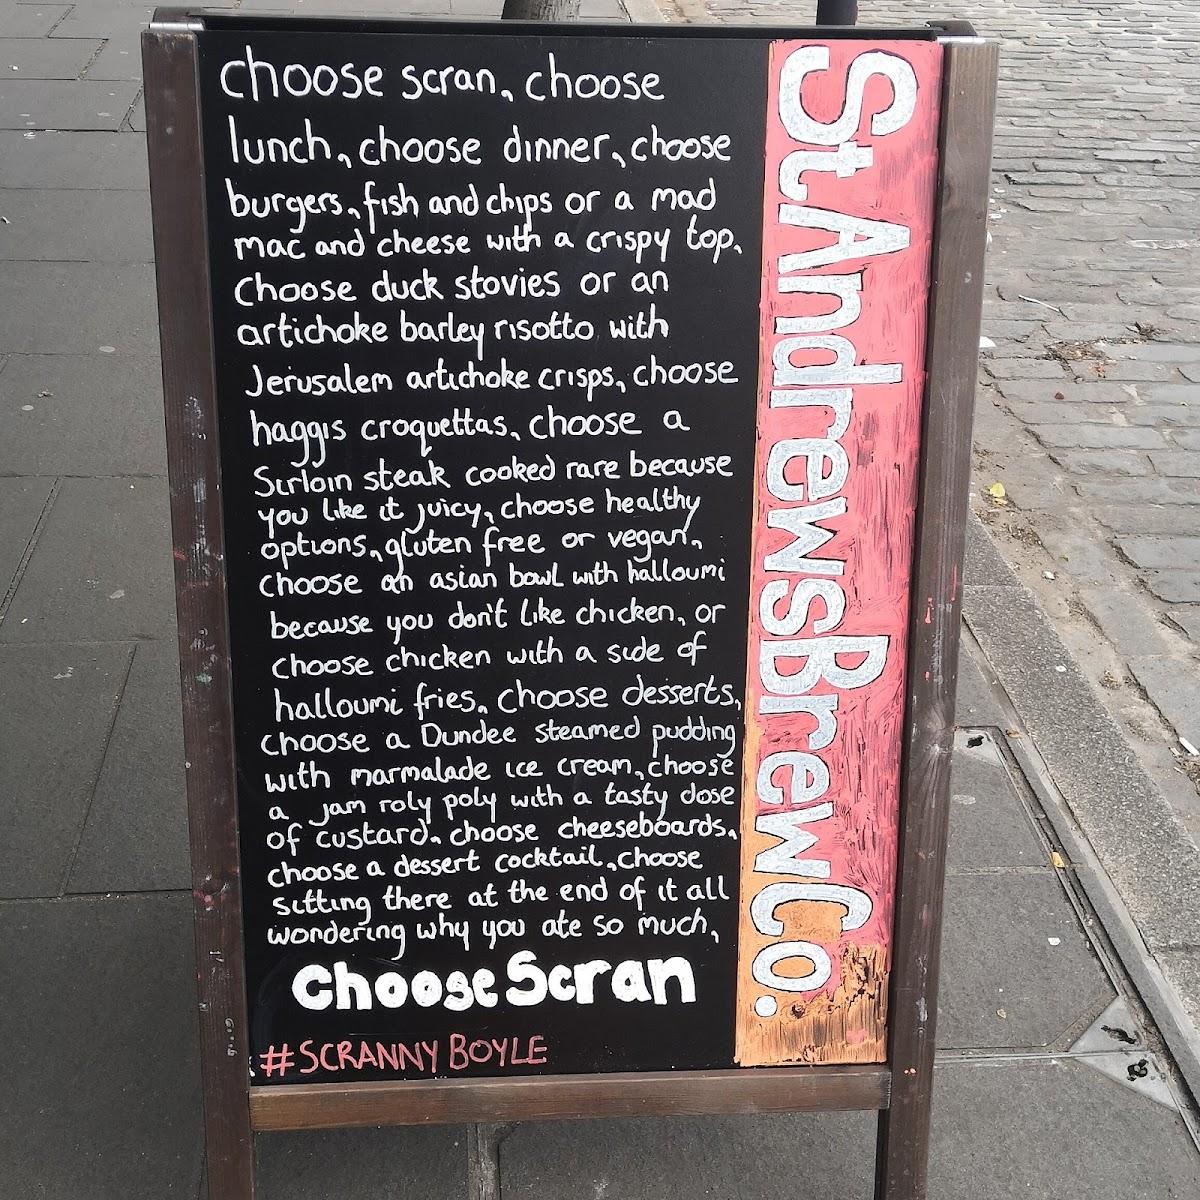 choose scran, choose
lunch, choose dinner, choose
burgers, fish and chips or a mad
mac and cheese with a crispy top.
Choose duck stovies or an
artichoke barley risotto with
Jerusalem artichoke crisps, choose
haggis croquettas, choose a
Sirloin steak cooked rare because
you like it juicy, choose healthy
options, gluten free or vegan,
choose an asian bowl with halloumi
because you don't like chicken, or
choose chicken with a side of
halloumi fries. Choose desserts,
choose a Dundee steamed pudding
with marmalade ice cream, choose
a jam roly poly with a tasty dose
of custard. choose cheeseboards,
choose a dessert cocktail, choose
sitting there at the end of it all
wondering why you ate so much,
Choose Scran
#SCRANNY BOYLE
StAndrewsBrewCo.